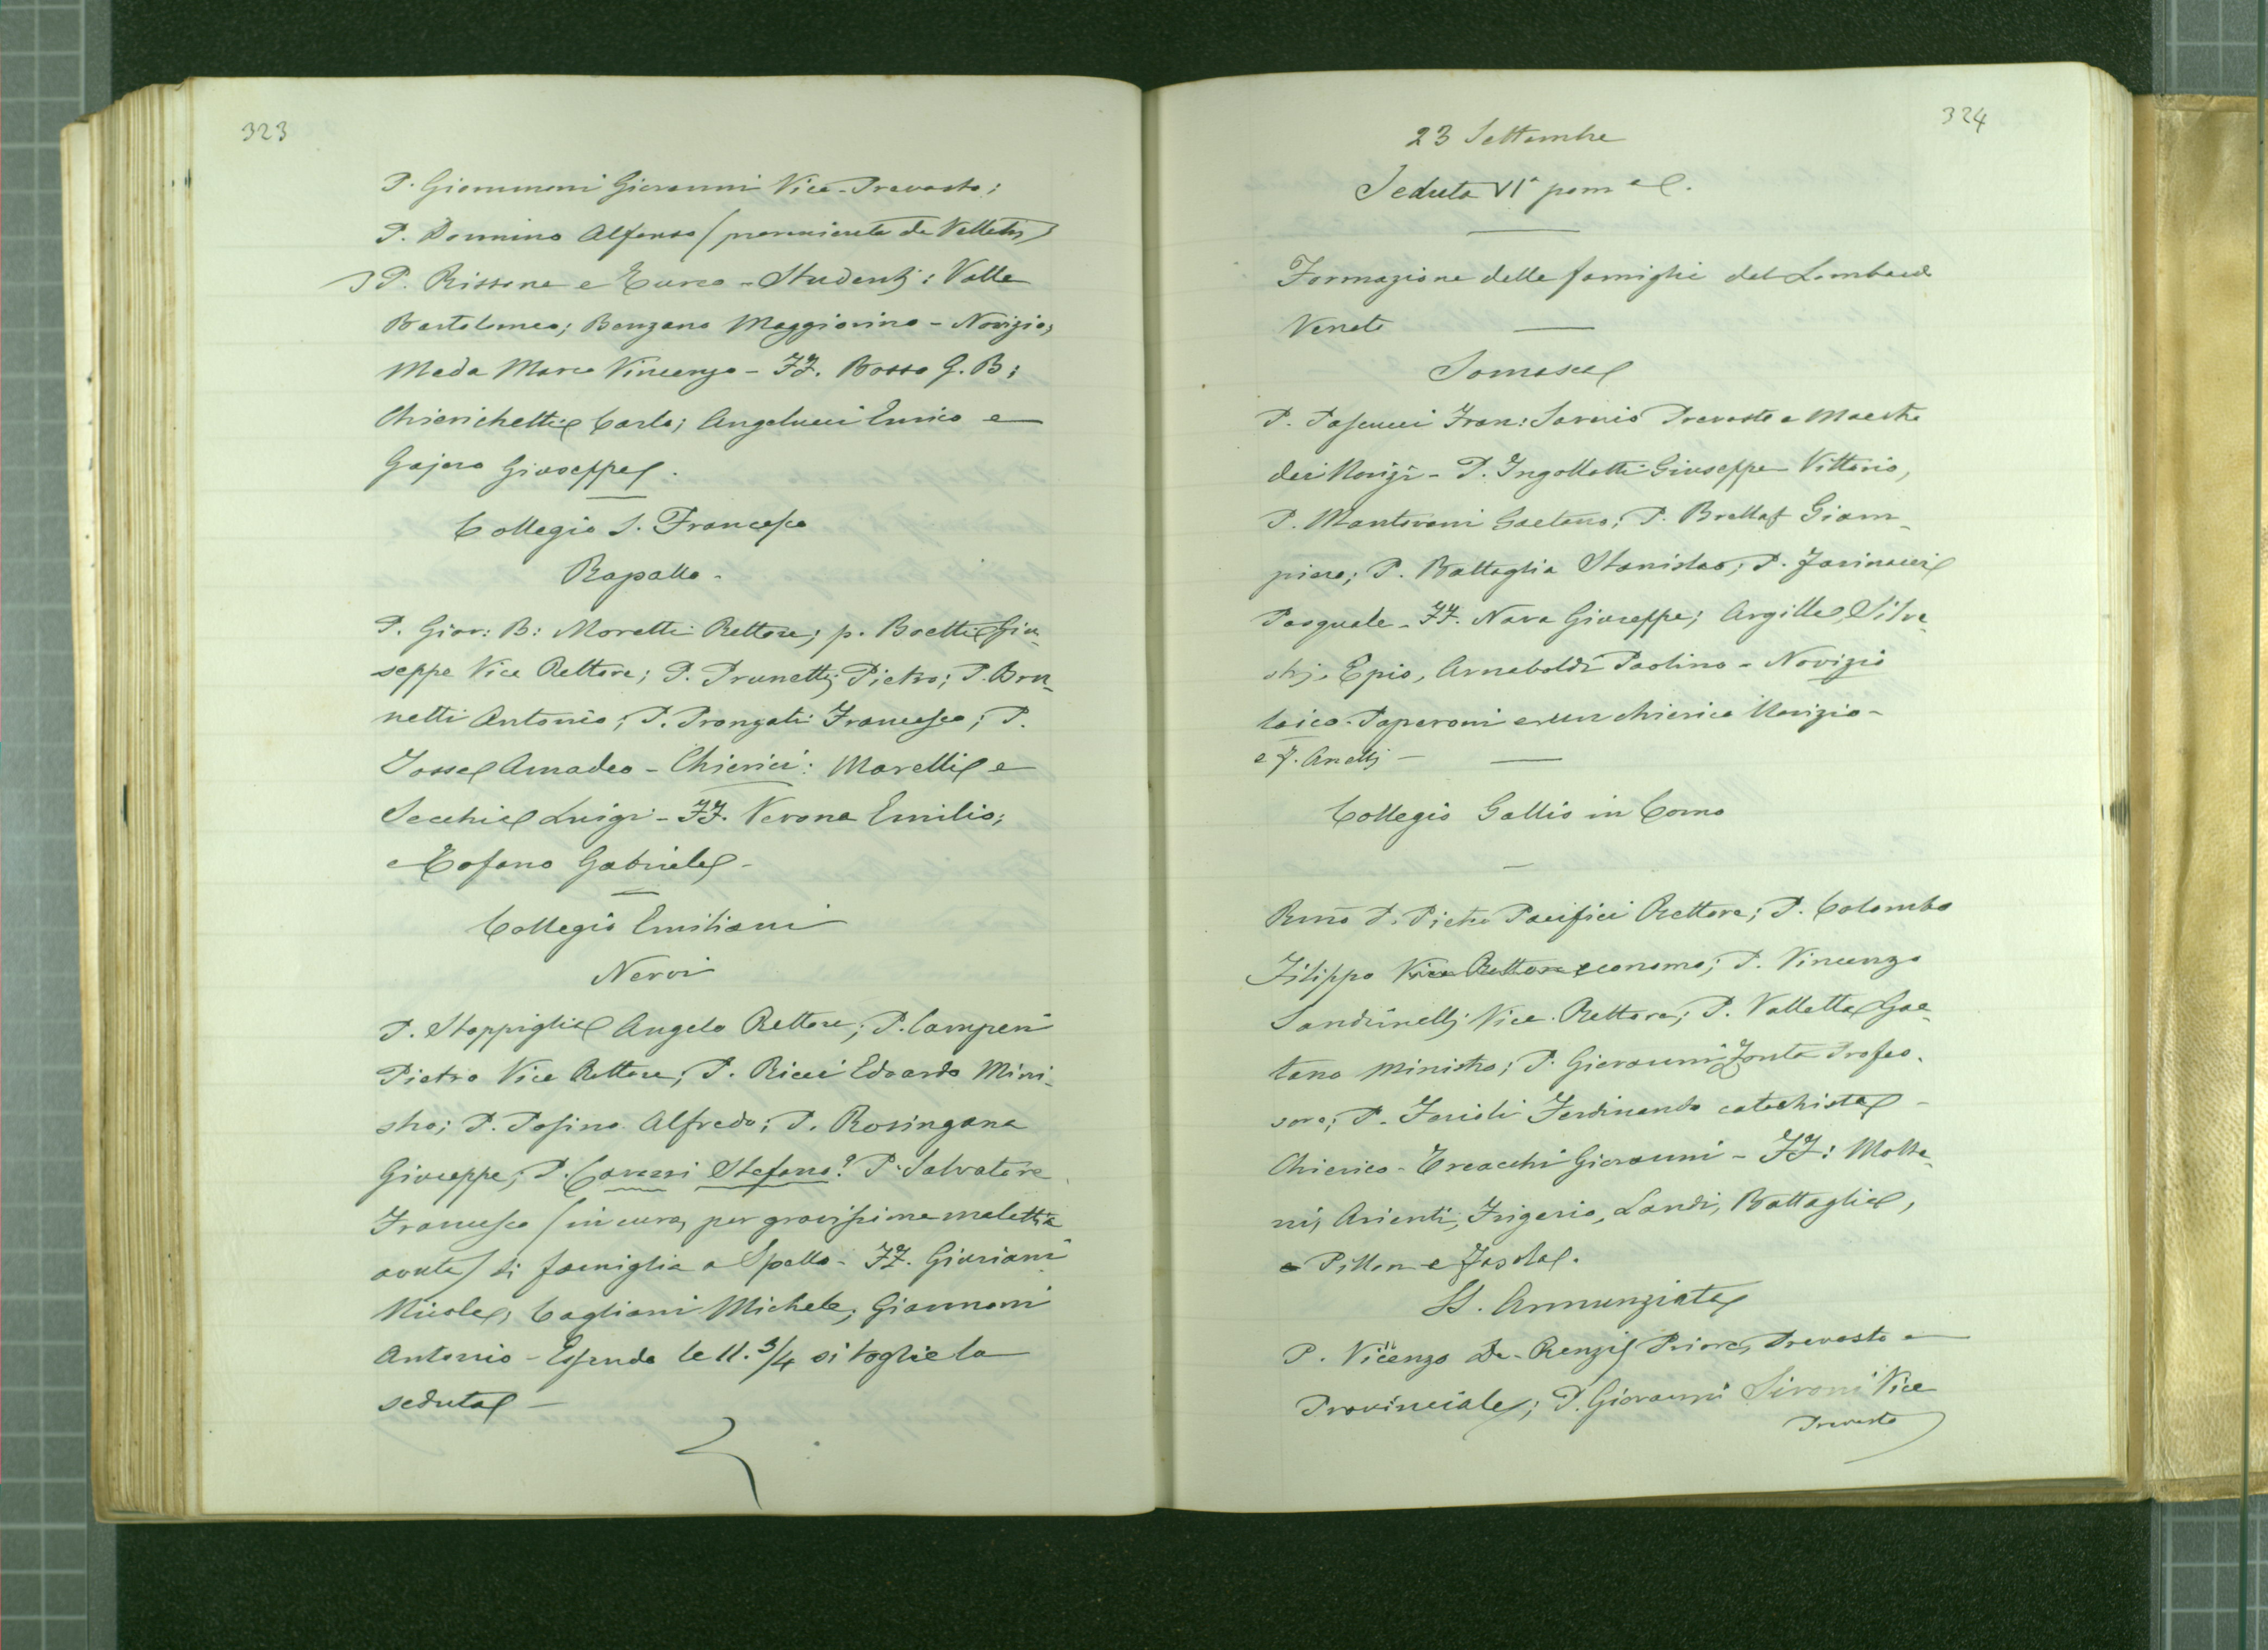 323
P. Giommoni Giovanni Vice-Prevosto;
P. Domino Alfonso (proveniente da Velletri)
P. Rissone e Turco - Studenti: Valle
Bartolomeo; Benzano Maggiorino - Novizio,
Meda Marco Vincenzo - FF. Bosso G. B;
Chierichetti Carlo; Angelucci Enrico e
Gajero Giuseppe.
Collegio S. Francesco
Rapallo.
P. Giov: B: Moretti Rettore; p. Boetti Giu-
seppe Vice Rettore; P. Prunetti Pietro; P. Bru-
netti Antonio; P. Pronzati Francesco; P.
Jossel Amadeo - Chierici: Marelli e
Secchi Luigi - FF. Verona Emilio;
e Tofano Gabriele -
Collegio Emiliani
Nervi
P. Stoppiglia Angelo Rettore; P. Camperi
Pietro Vice Rettore; P. Ricci Edoardo Mini-
stro; P. Pasino Alfredo; P. Rosingana
Giuseppe; P. Stefano? P. Salvatore
Francesco (in cura, per gravissima malattia
avuta) di famiglia a Spello - FF. Giuriani
Nicola, Cagliani Michele; Giannoni
Antonio - Essendo le 11. 3/4 si toglie la
seduta -
324
23 Settembre
Seduta VIª pom
Formazione delle famiglie del Lombardo
Veneto
Somasca
P. Pascucci Fran: Saverio Prevosto e Maestro
dei Novizi - P. Ingolotti Giuseppe Vittorio,
P. Mantovani Gaetano; P. Giam-
piero; P. Battaglia Stanislao; P. Farinacci
Pasquale - FF. Nava Giuseppe; Argille, Silve-
stri, Epis, Arnaboldi Paolino - Novizio
laico - Paperoni e un chierico Novizio -
e f. Anelli -
Collegio Gallio in Como
Rmo P. Pietro Pacifici Rettore; P. Colombo
Filippo Vice Rettore economo; P. Vincenzo
Sandrinelli Vice Rettore; P. Valletta Gae-
tano Ministro; P. Giovanni Zonta Profes-
sore; P. Ferioli Ferdinando catechista -
Chierico - Trecchi Giovanni - FF: Molte-
ni, Arienti, Frigerio, Landi, Battaglia,
e Pillon e Fasola.
SS. Annunziata
P. Vicenzo De-Renzis Priore, Prevosto e
Provinciale; P. Giovanni Sironi Vice
Prevosto